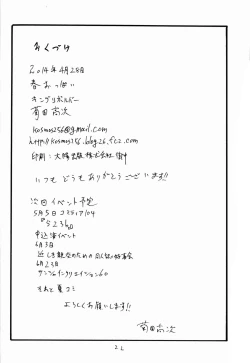 おくづけ
2014年4月28日
春おっぱい
キングリボルバー
菊田尚次
kosmos256@gmail.com
http://kosmos256.blog26.fc2.com
印刷：大陽出版株式会社 御中
いつも どうも ありがとうございます!!
次回 イベント予定
5月5日 コミティア104
申込済イベント
6月23日
サンシャインクリエイション60
そのあと 夏コミ
よろしくお願いします!!
菊田尚次
22